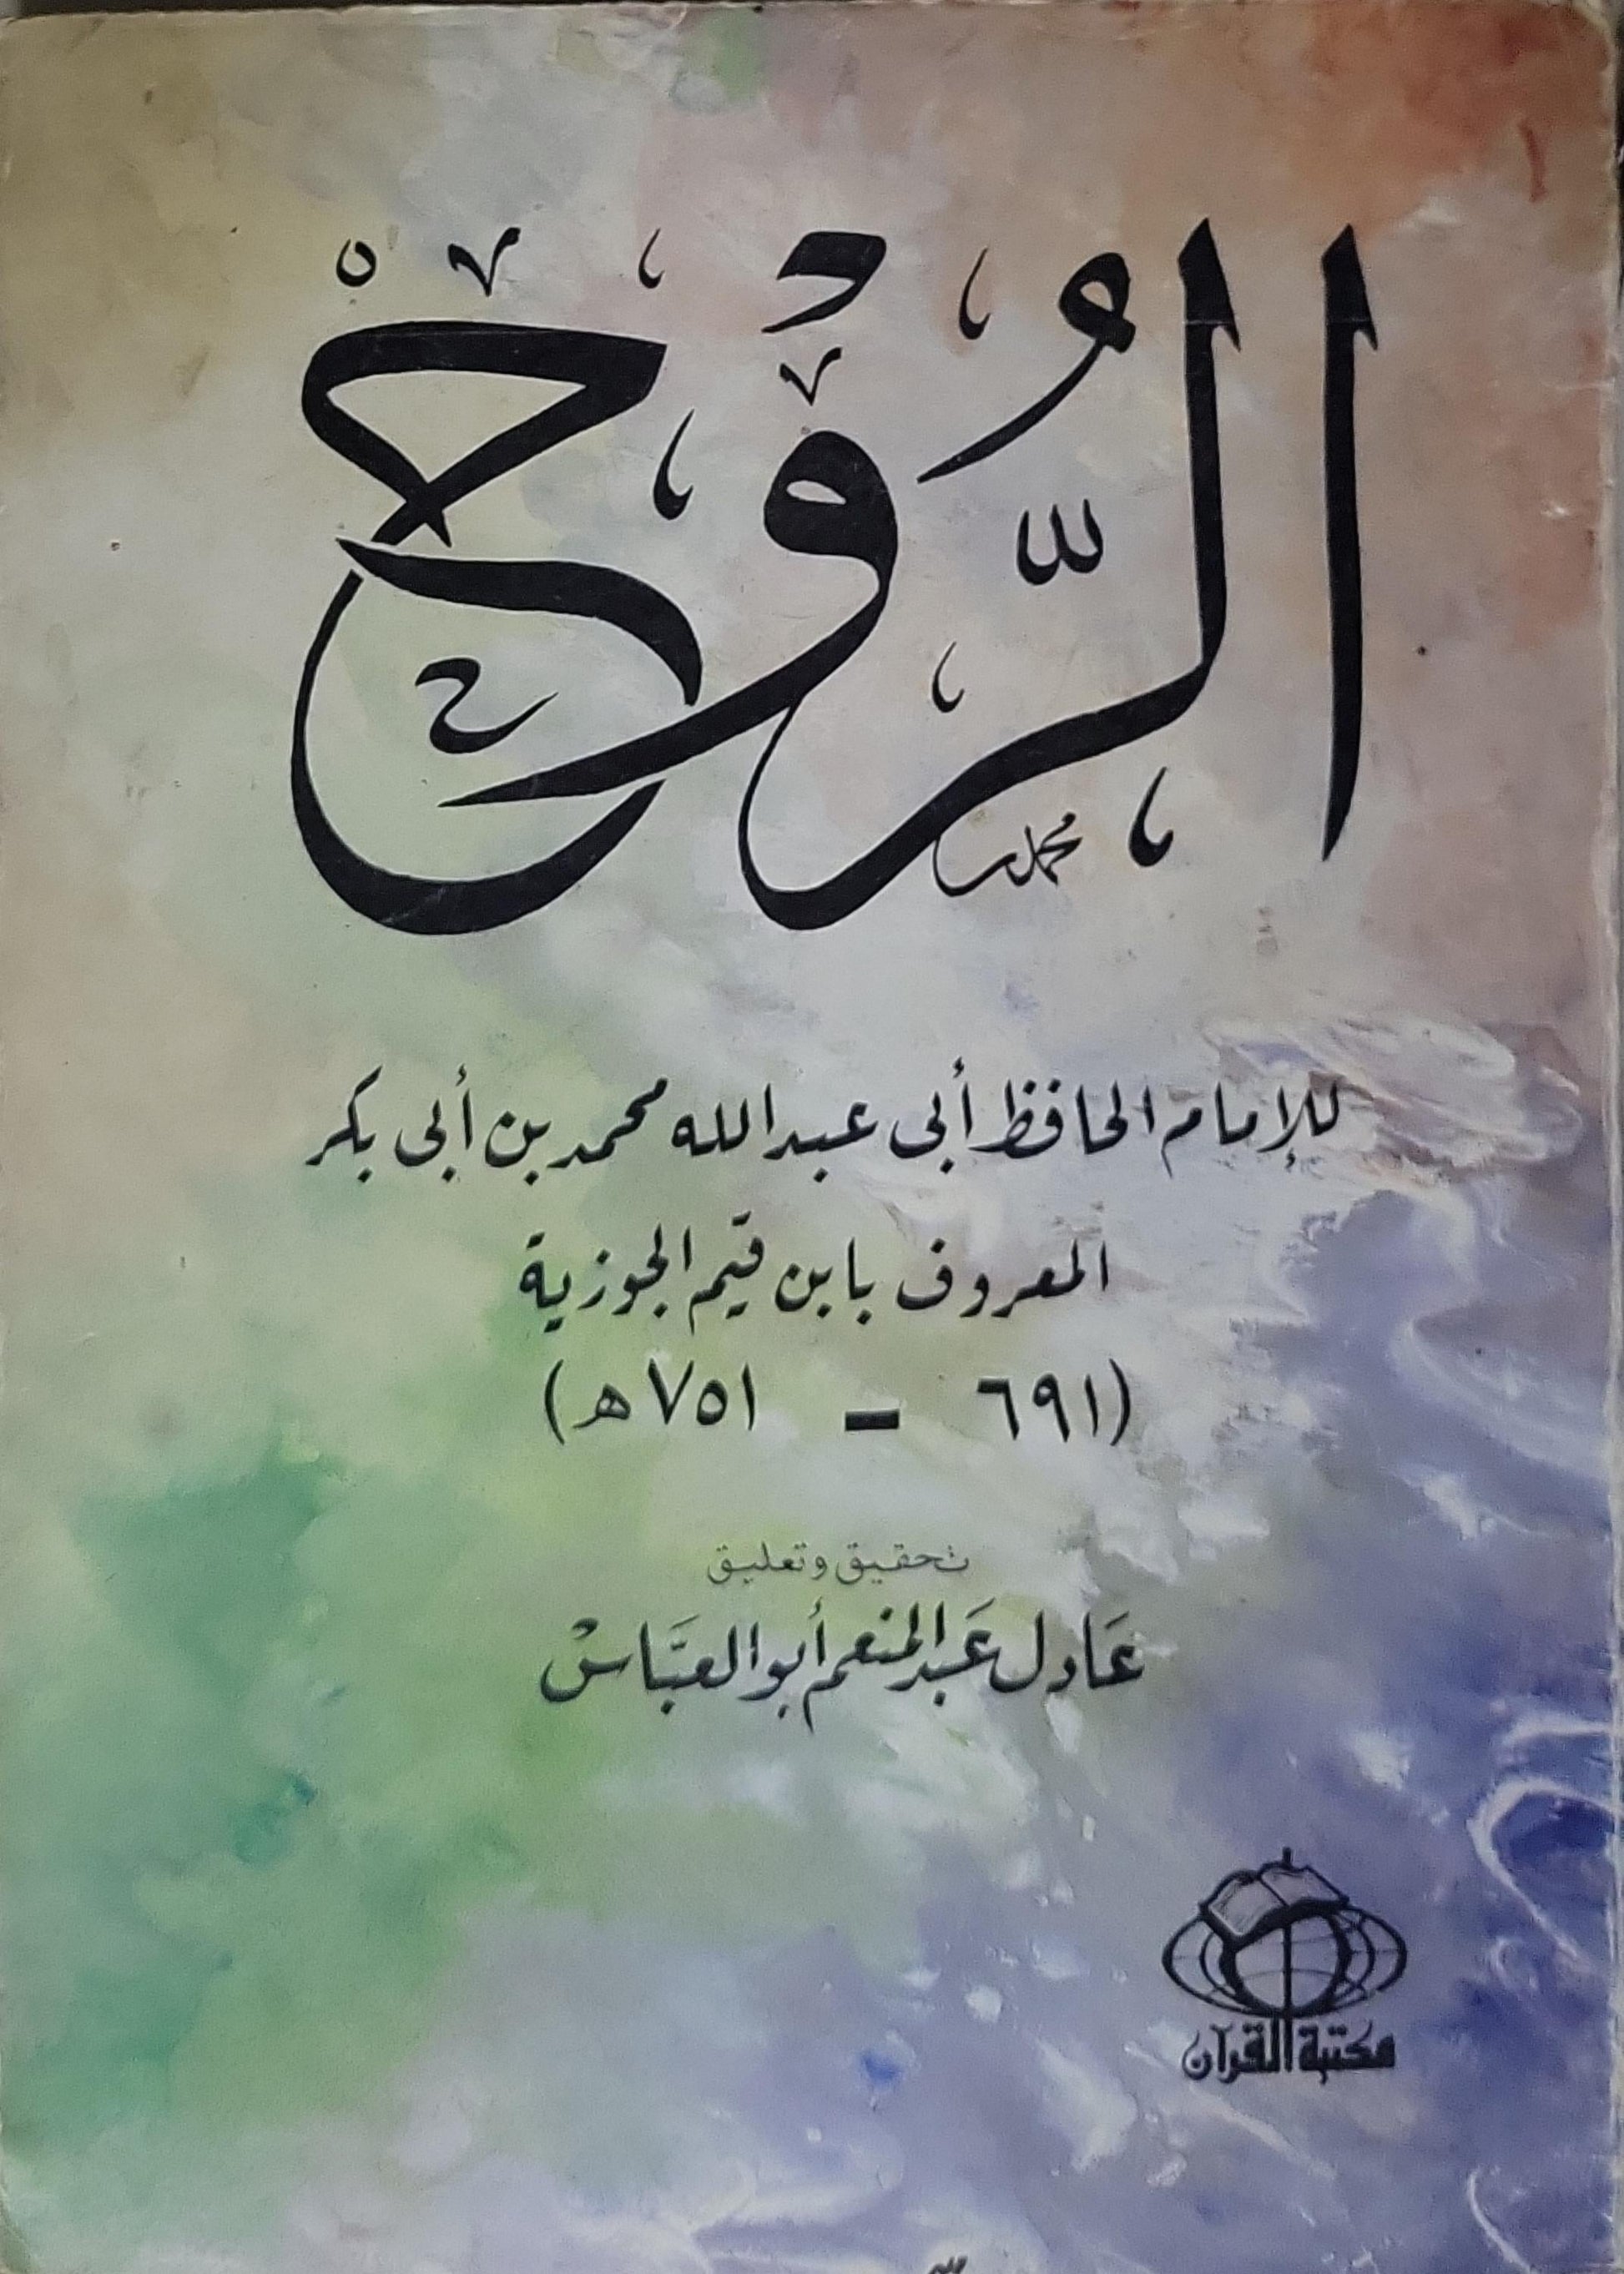 الرُّوحْ
محمد
للإمام الحافظ أبى عبد الله محمد بن أبى بكر
المعروف بابن قيم الجوزية
(٦٩١ - ٧٥١ هـ)
تحقيق وتعليق
عَادل عَبد المنعم أبو العبَّاسْ
مكتبة القرآن